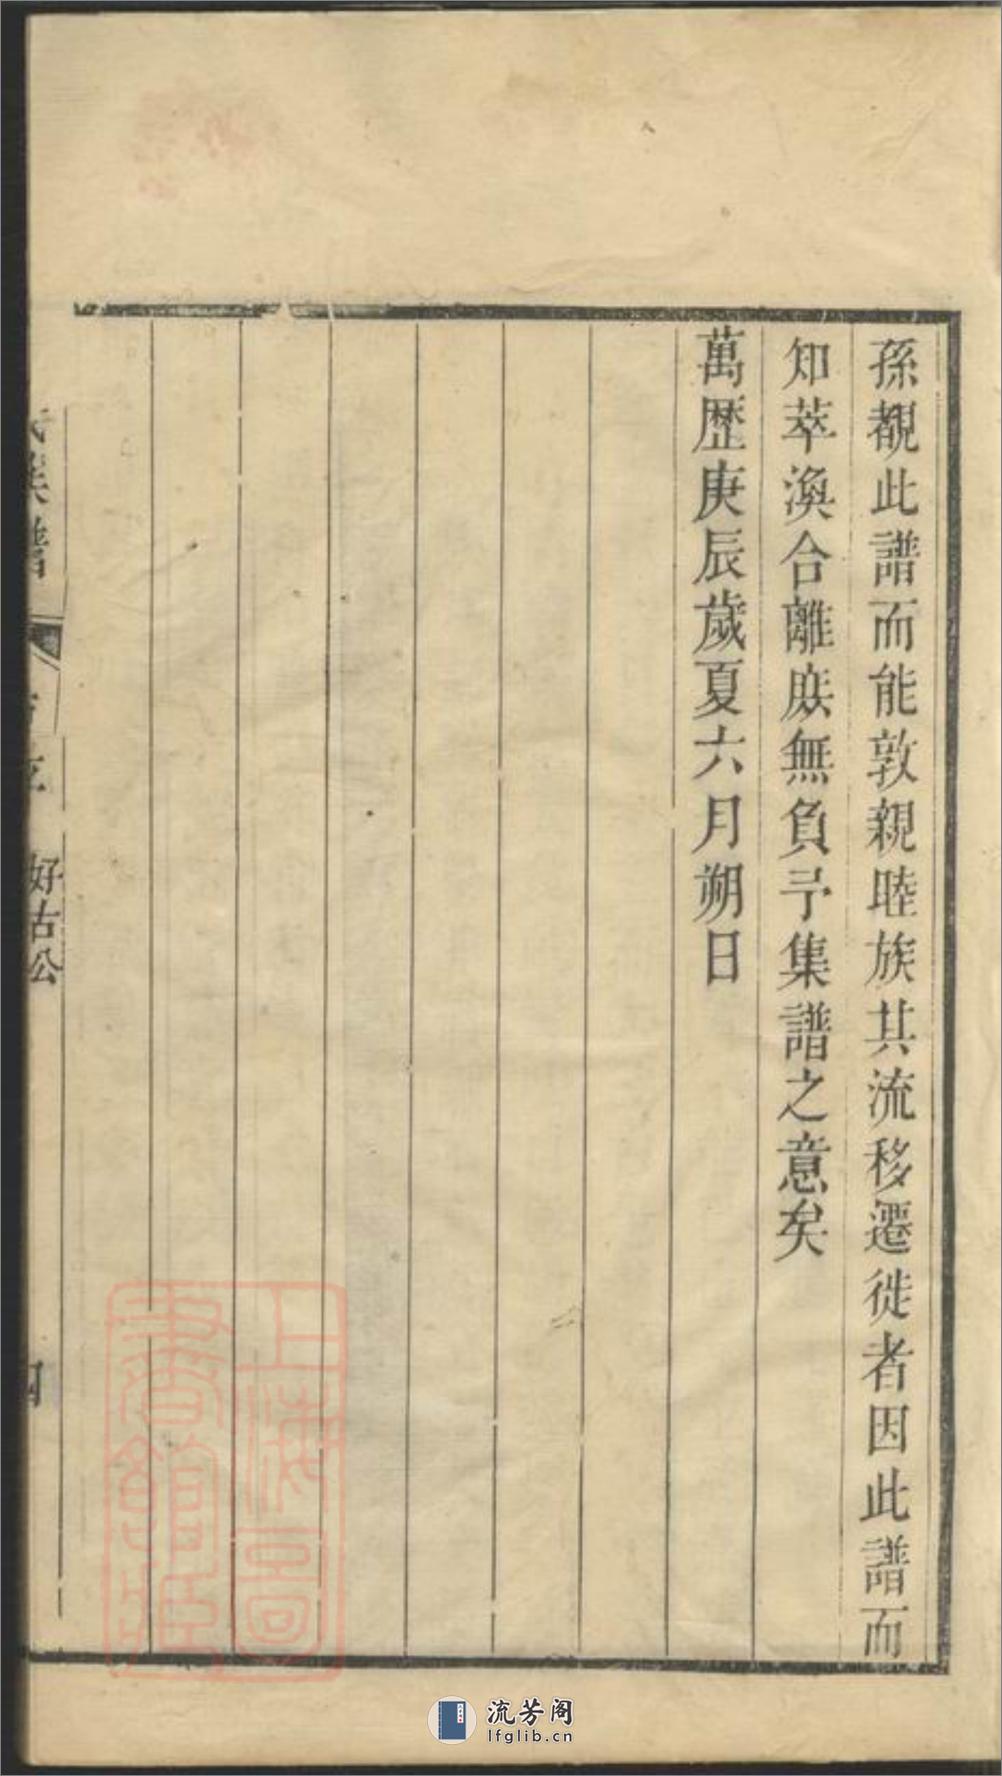 孫覩此譜而能敦親睦族其流移遷徙者因此譜而
知萃渙合離庶無負予集譜之意矣
萬歷庚辰歲夏六月朔日
族譜
好古公
四
上海圖
書館藏
流芳阁
lfglib.cn